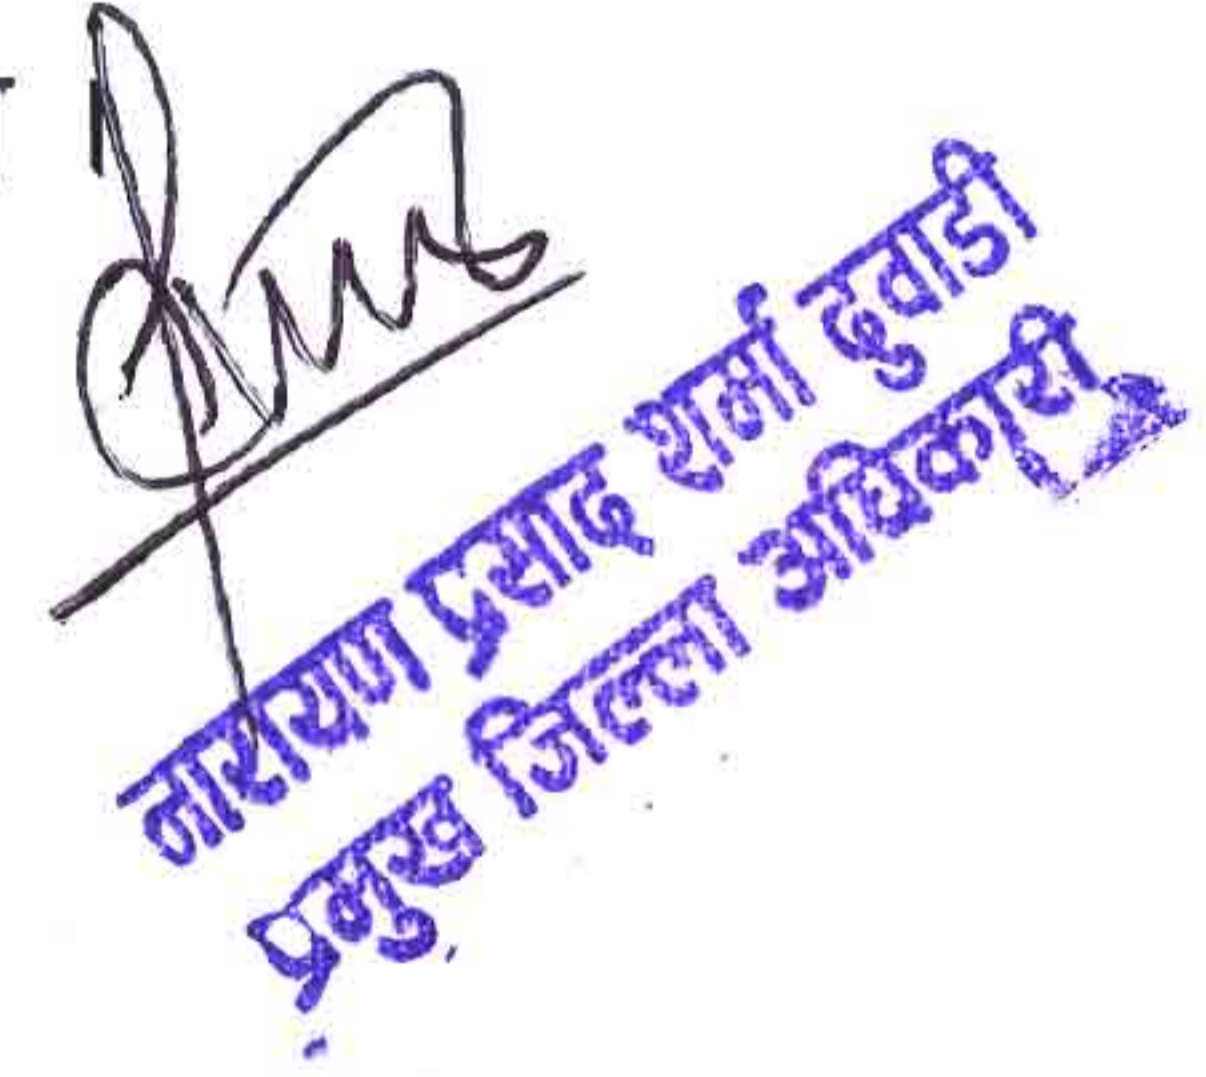 नारायण प्रसाद शर्मा दुवाडी
प्रमुख जिल्ला अधिकारी